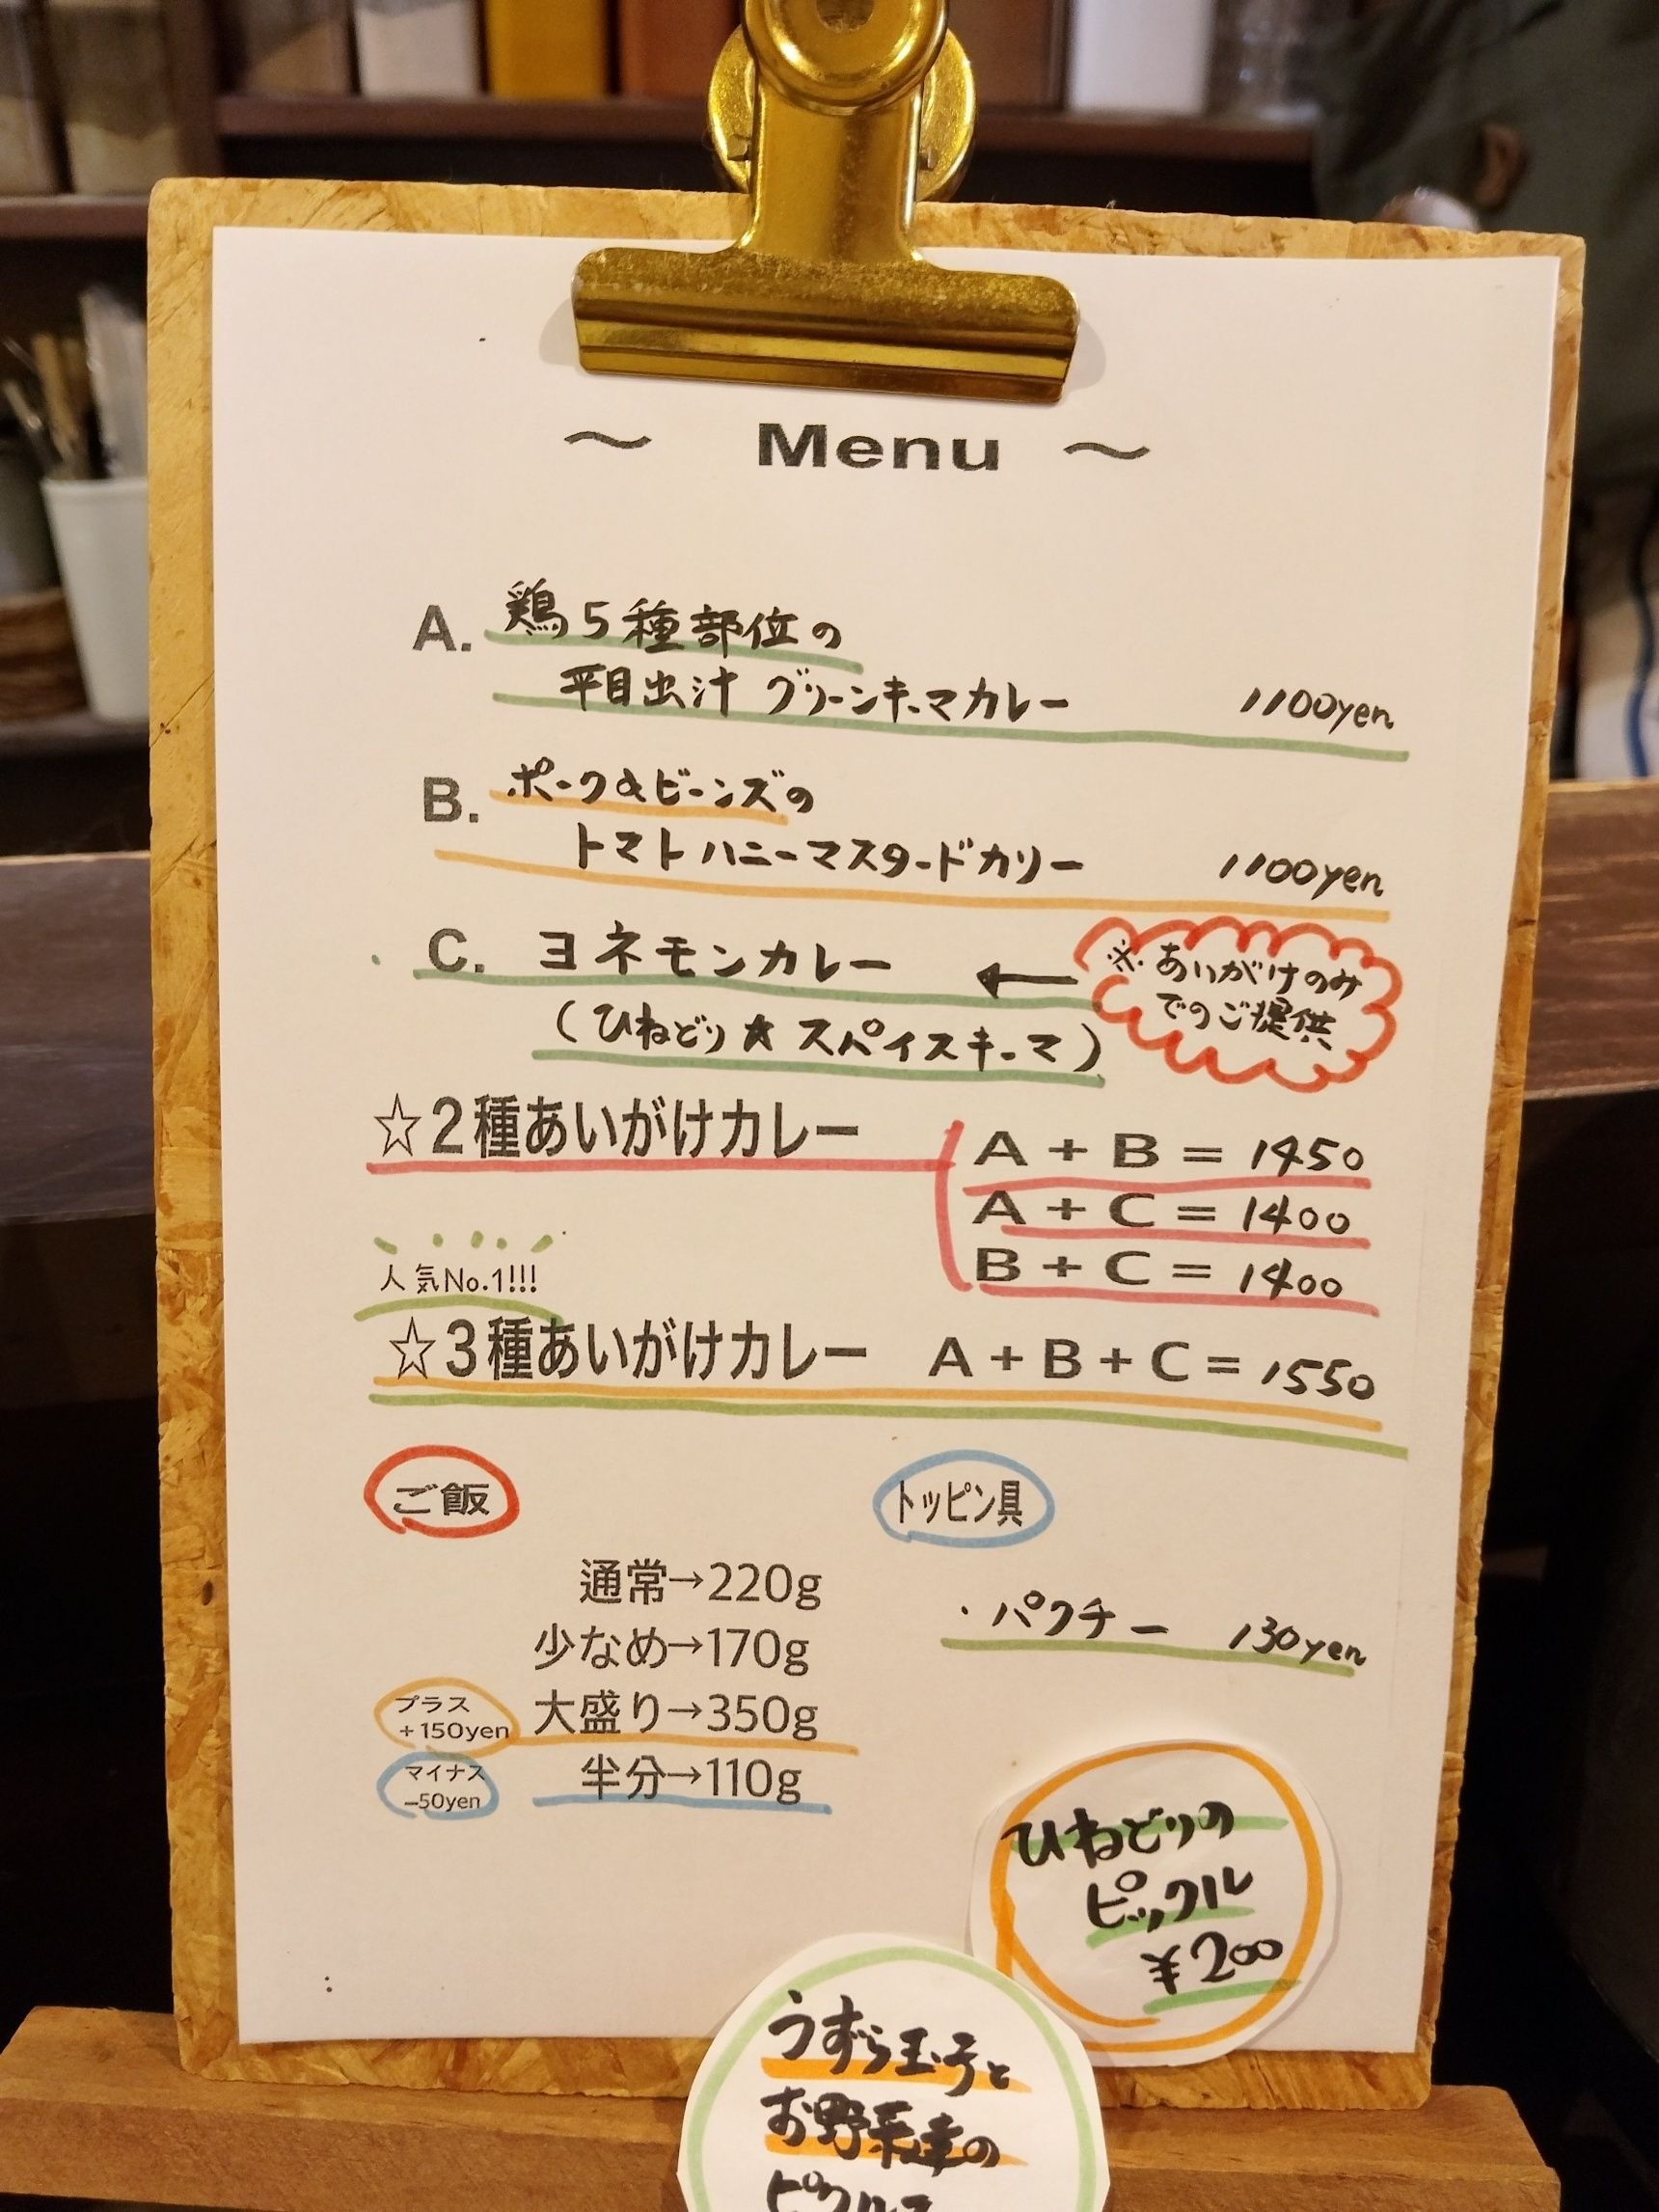 ～ Menu ～
A. 鶏5種部位の
平目出汁 グリーンキーマカレー 1100yen
B. ポーク&ビーンズの
トマトハニーマスタードカリー 1100yen
C. ヨネモンカレー ←
※あいがけのみ
でのご提供
(ひねどり★スパイスキーマ)
☆2種あいがけカレー
A + B = 1450
A + C = 1400
B + C = 1400
人気No.1!!!
☆3種あいがけカレー A + B + C = 1550
ご飯
通常→220g
少なめ→170g
プラス
+150yen
大盛り→350g
マイナス
-50yen
半分→110g
トッピン具
・パクチー 130yen
ひねどりの
ピックル
¥200
うずら玉子と
お野菜達の